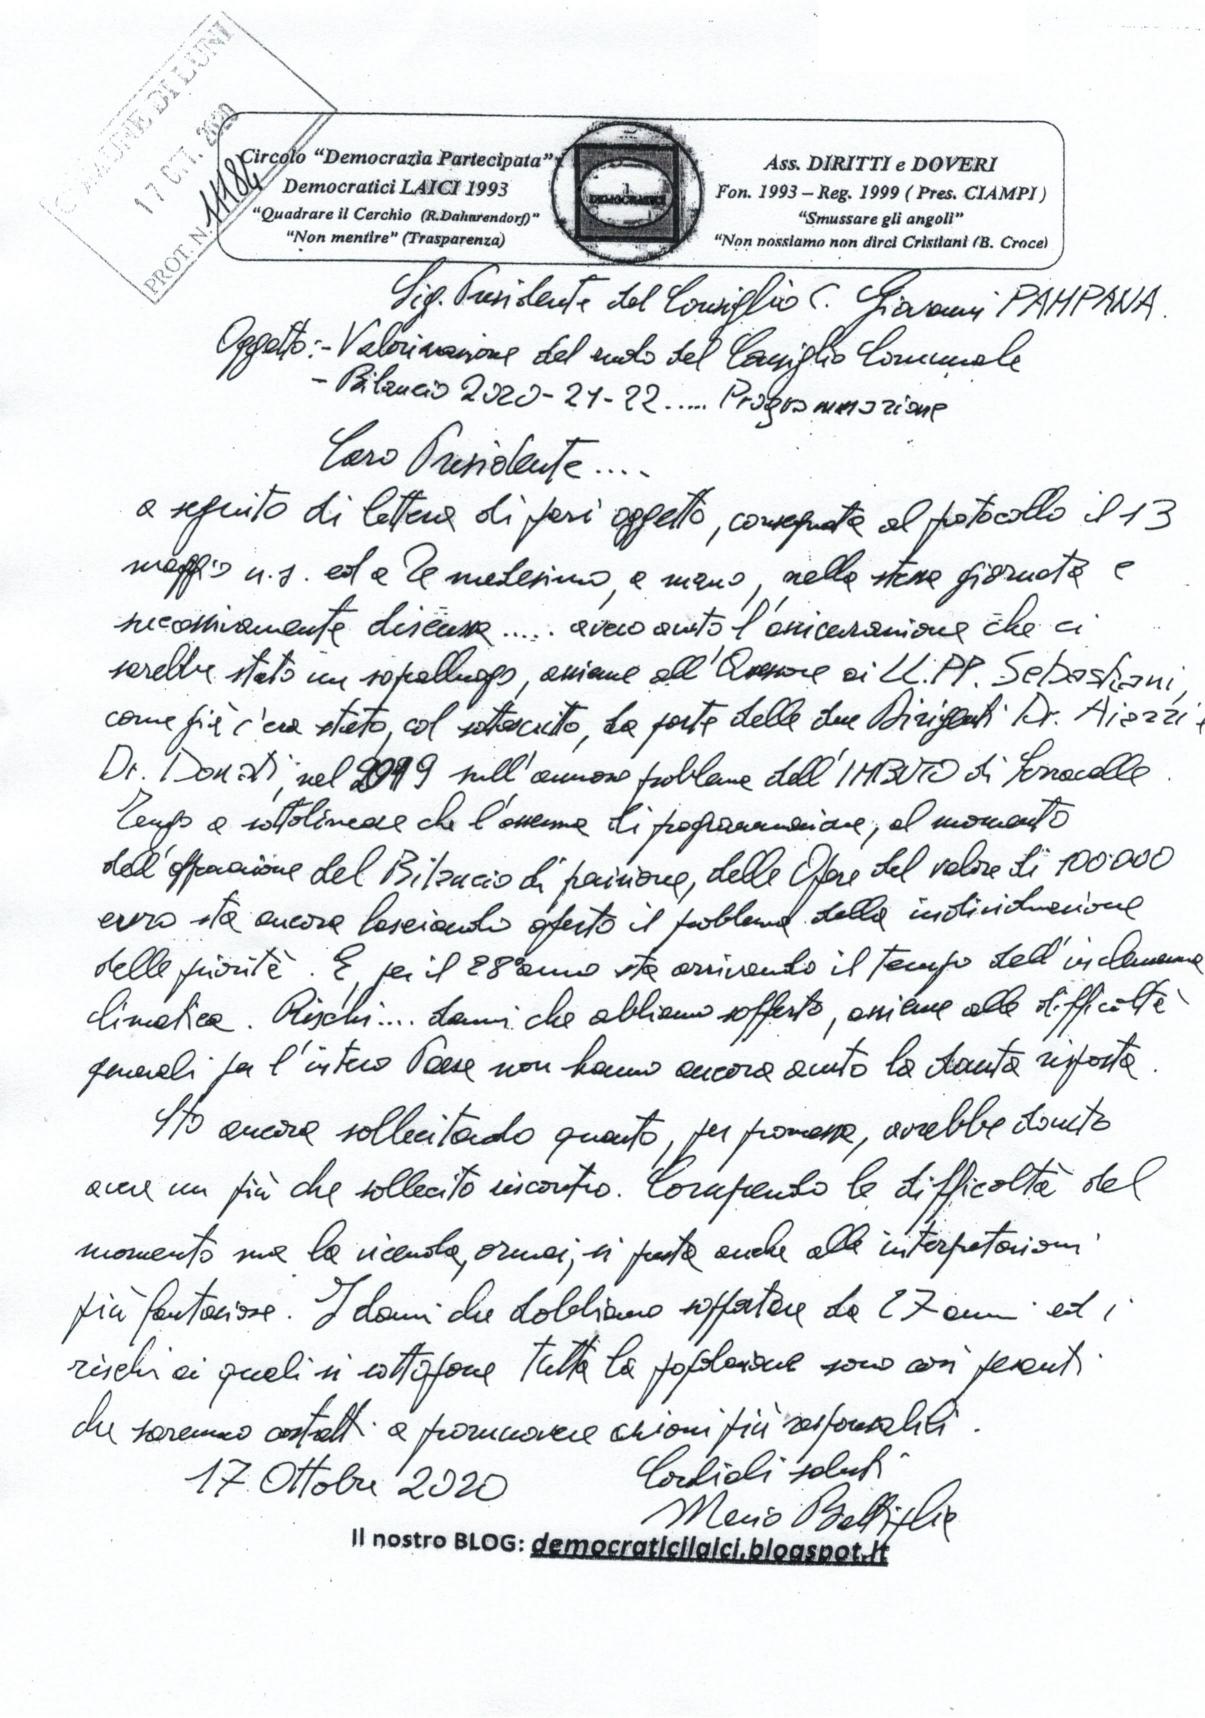 COMUNE DI LUNI
17 OTT. 2020
PROT. N. 11184
Circolo “Democrazia Partecipata”
Democratici LAICI 1993
“Quadrare il Cerchio (R.Daharendorf)”
“Non mentire” (Trasparenza)
DEMOCRATICI
Ass. DIRITTI e DOVERI
Fon. 1993 – Reg. 1999 ( Pres. CIAMPI )
“Smussare gli angoli”
“Non possiamo non dirci Cristiani (B. Croce)
Sig. Presidente del Consiglio C. Giovanni PAMPANA.
Oggetto:- Valorizzazione del ruolo del Consiglio Comunale
- Bilancio 2020-21-22..... Programmazione
Caro Presidente....
a seguito di lettera di pari oggetto, consegnata al protocollo il 13
maggio u.s. ed a Te medesimo, a mano, nella stessa giornata e
successivamente discussa..... avevo avuto l'assicurazione che ci
sarebbe stato un sopralluogo, assieme all'Assessore ai LL.PP. Sebastiani,
come già c'era stato, col sottoscritto, da parte delle due Dirigenti Dr. Aiazzi e
Dr. Donati, nel 2019 sull'annoso problema dell'IMBUTO di
Tengo a sottolineare che l'assenza di programmazione, al momento
dell'approvazione del Bilancio di previsione, delle Opere del valore di 100.000
euro sta ancora lasciando aperto il problema della individuazione
delle priorità. E, per il 28°anno sta arrivando il tempo dell'inclemenza
climatica. Rischi.... danni che abbiamo sofferto, assieme alle difficoltà
generali per l'intero Paese non hanno ancora avuto la dovuta risposta.
Sto ancora sollecitando quanto, per promessa, avrebbe dovuto
avere un più che sollecito riscontro. Comprendo le difficoltà del
momento ma la vicenda, ormai, si presta anche alle interpretazioni
più fantasiose. I danni che dobbiamo sopportare da 27 anni ed i
rischi ai quali si sottopone tutta la popolazione sono così pesanti
che saremmo costretti a promuovere azioni più responsabili.
17 Ottobre 2020 Cordiali saluti
Mario Battiglia
Il nostro BLOG: democraticilaici.blogspot.it